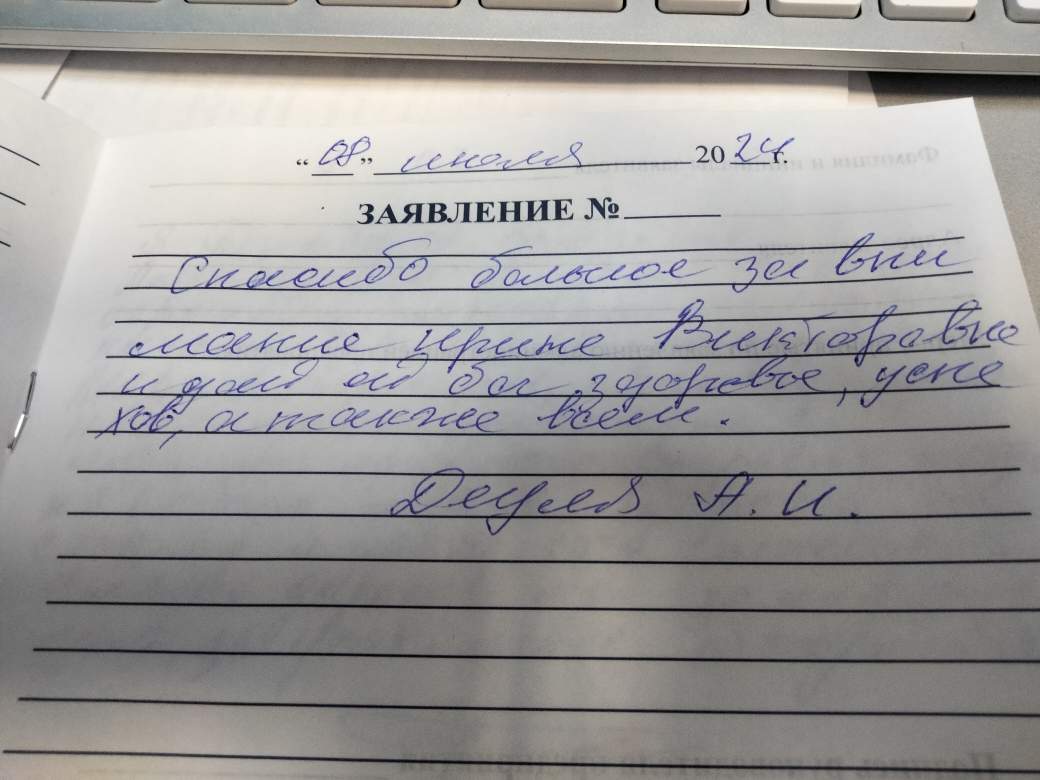 "08" июля 2024 г.
ЗАЯВЛЕНИЕ №
Спасибо большое за вни
мание Ирине Виктаравне
и дай ей бог здоровье, успе
хов, а также всем.
А. И.